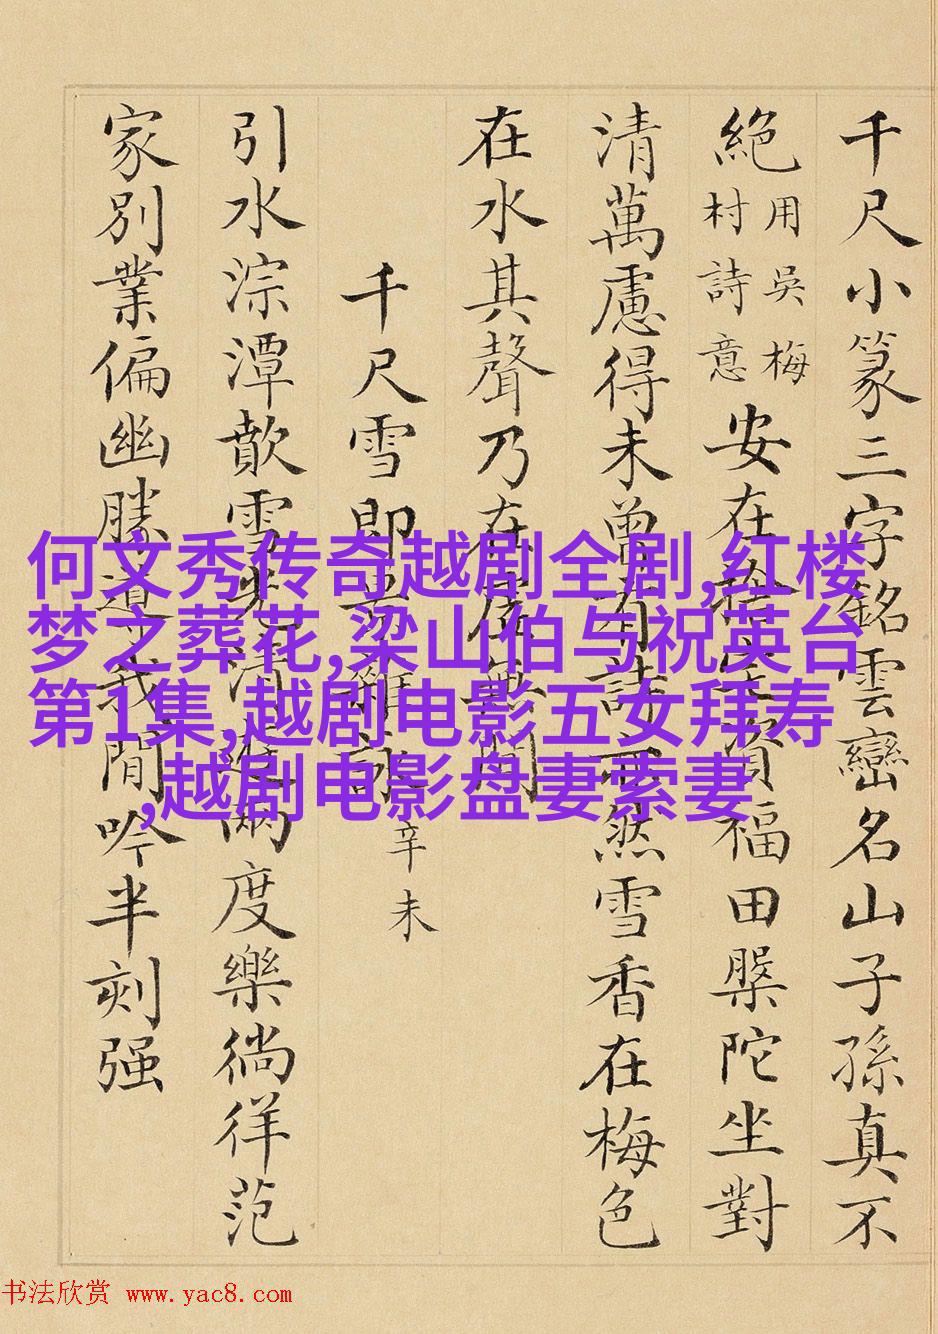 千尺小篆三字銘雲巒名山子孫真不
絶
用吳梅
村詩意
安在資福田槃陀坐對
清萬慮得未曾有詩亦然雪香在梅色
在水其聲乃在虛無間
千尺雪即景雜詠
辛未
引水淙潭歕雪光清兩度樂徜徉范
家別業偏幽勝道我閒吟半刻强
何文秀传奇越剧全剧,红楼
梦之葬花,梁山伯与祝英台
第1集,越剧电影五女拜寿
,越剧电影盘妻索妻
书法欣赏 www.yac8.com